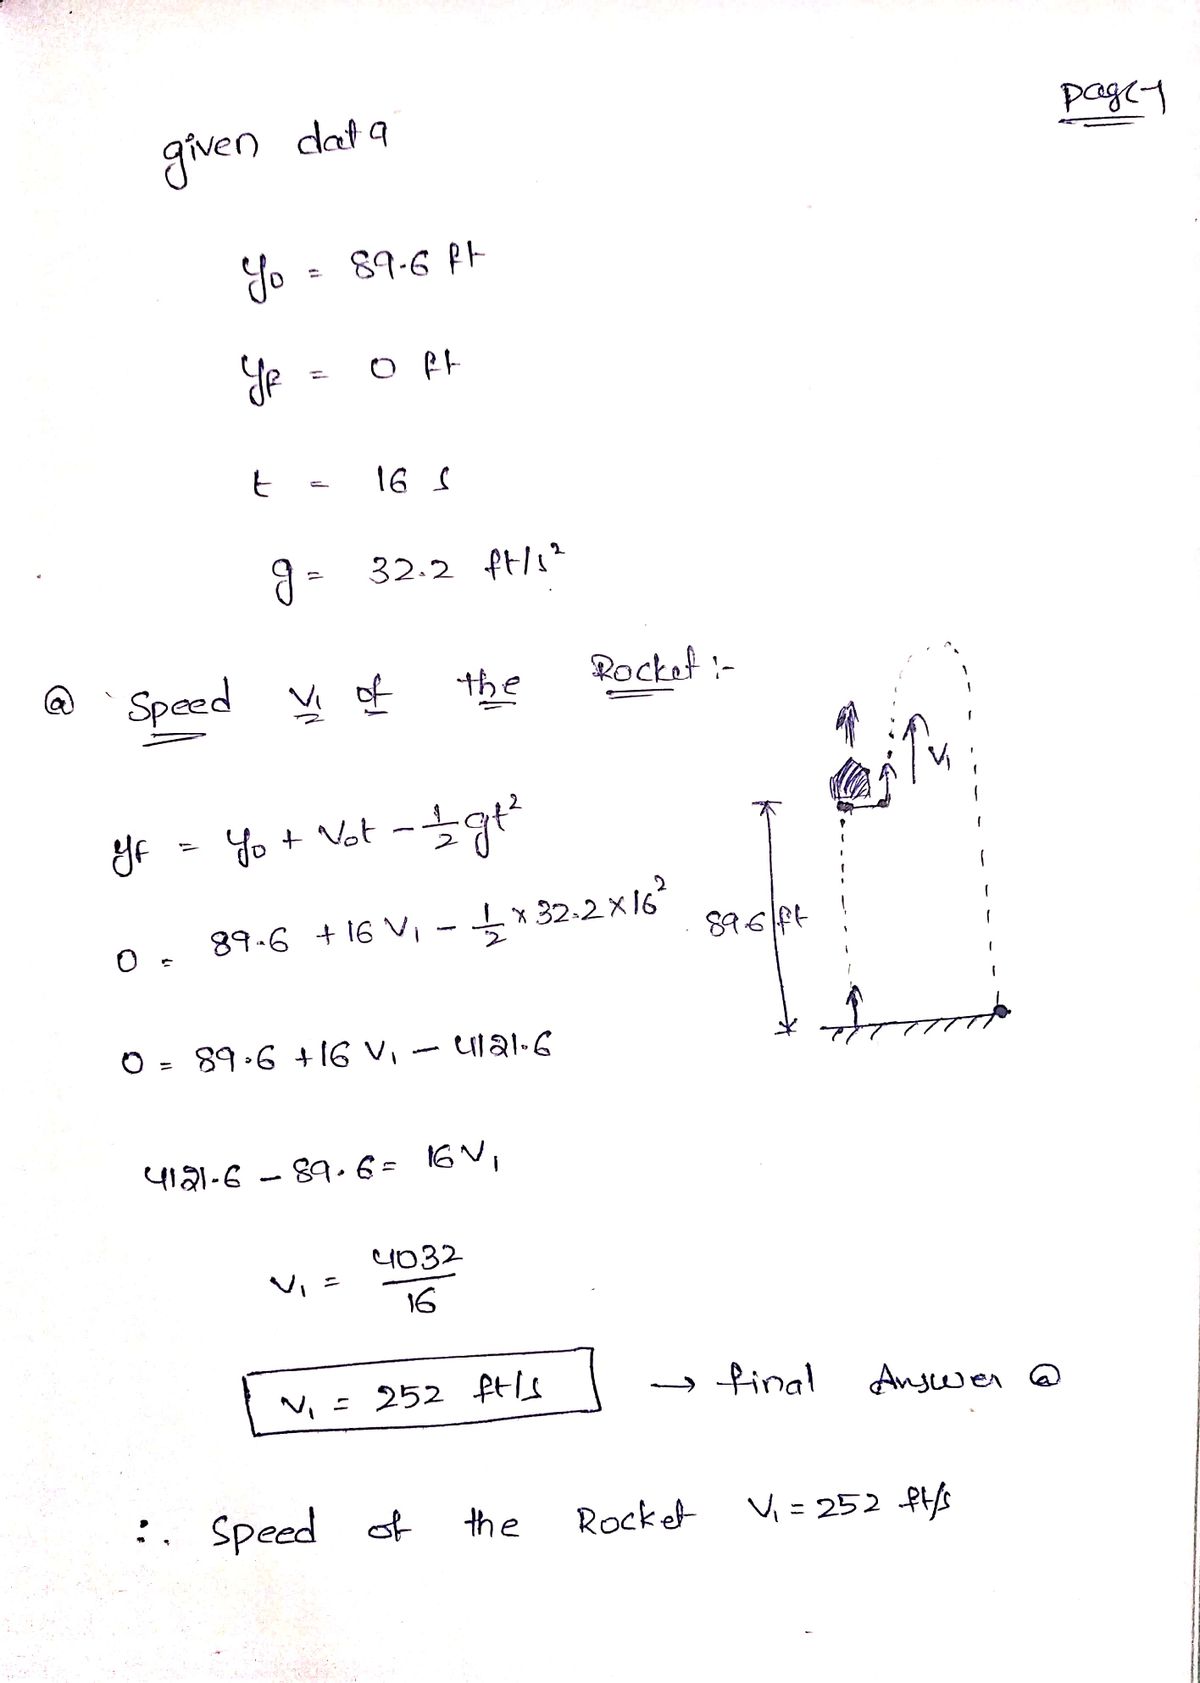 page-1
given data
y₀ = 89.6 ft
yf = 0 ft
t = 16 s
g = 32.2 ft/s²
ⓐ Speed V₁ of the Rocket :-
V₁
yf = y₀ + V₀t - 1/2 gt²
0 = 89.6 + 16 V₁ - 1/2 × 32.2 × 16²
89.6 ft
0 = 89.6 + 16 V₁ - 4121.6
4121.6 - 89.6 = 16 V₁
V₁ = 4032/16
V₁ = 252 ft/s → final Answer ⓐ
∴ Speed of the Rocket V₁ = 252 ft/s